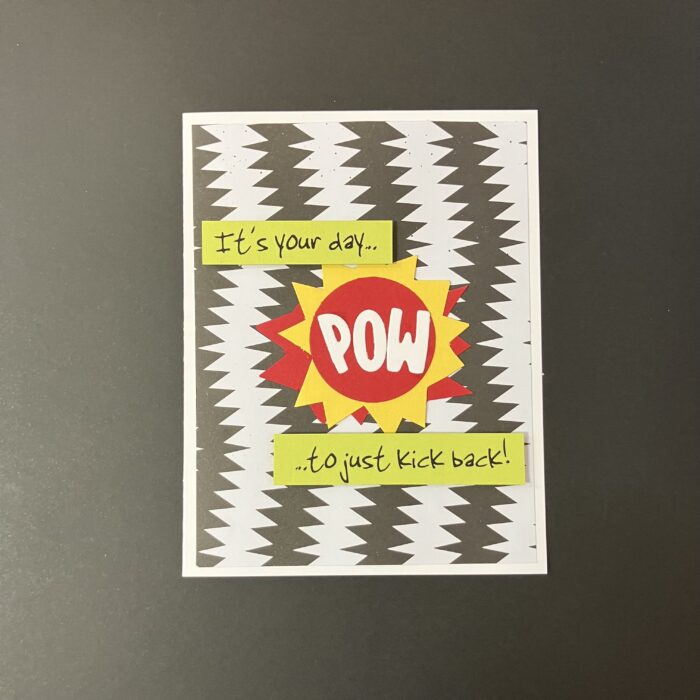 It's your day...
POW
...to just kick back!